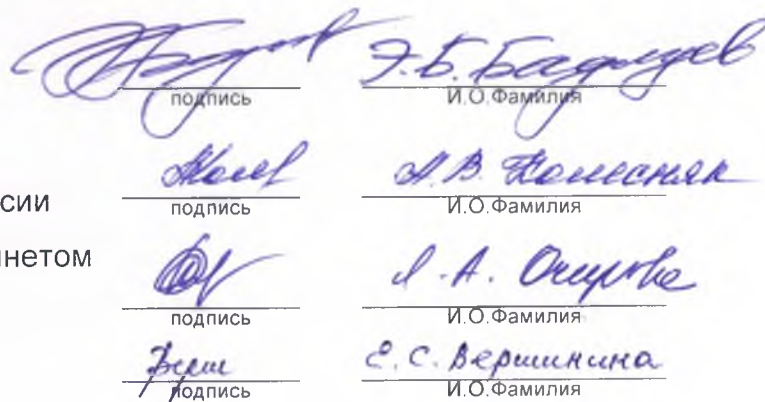 Э.Б. Бадмуев
подпись И.О.Фамилия
А.В.
сии подпись И.О.Фамилия
нетом А.А. Очирова
подпись И.О.Фамилия
Верш Е.С. Вершинина
подпись И.О.Фамилия